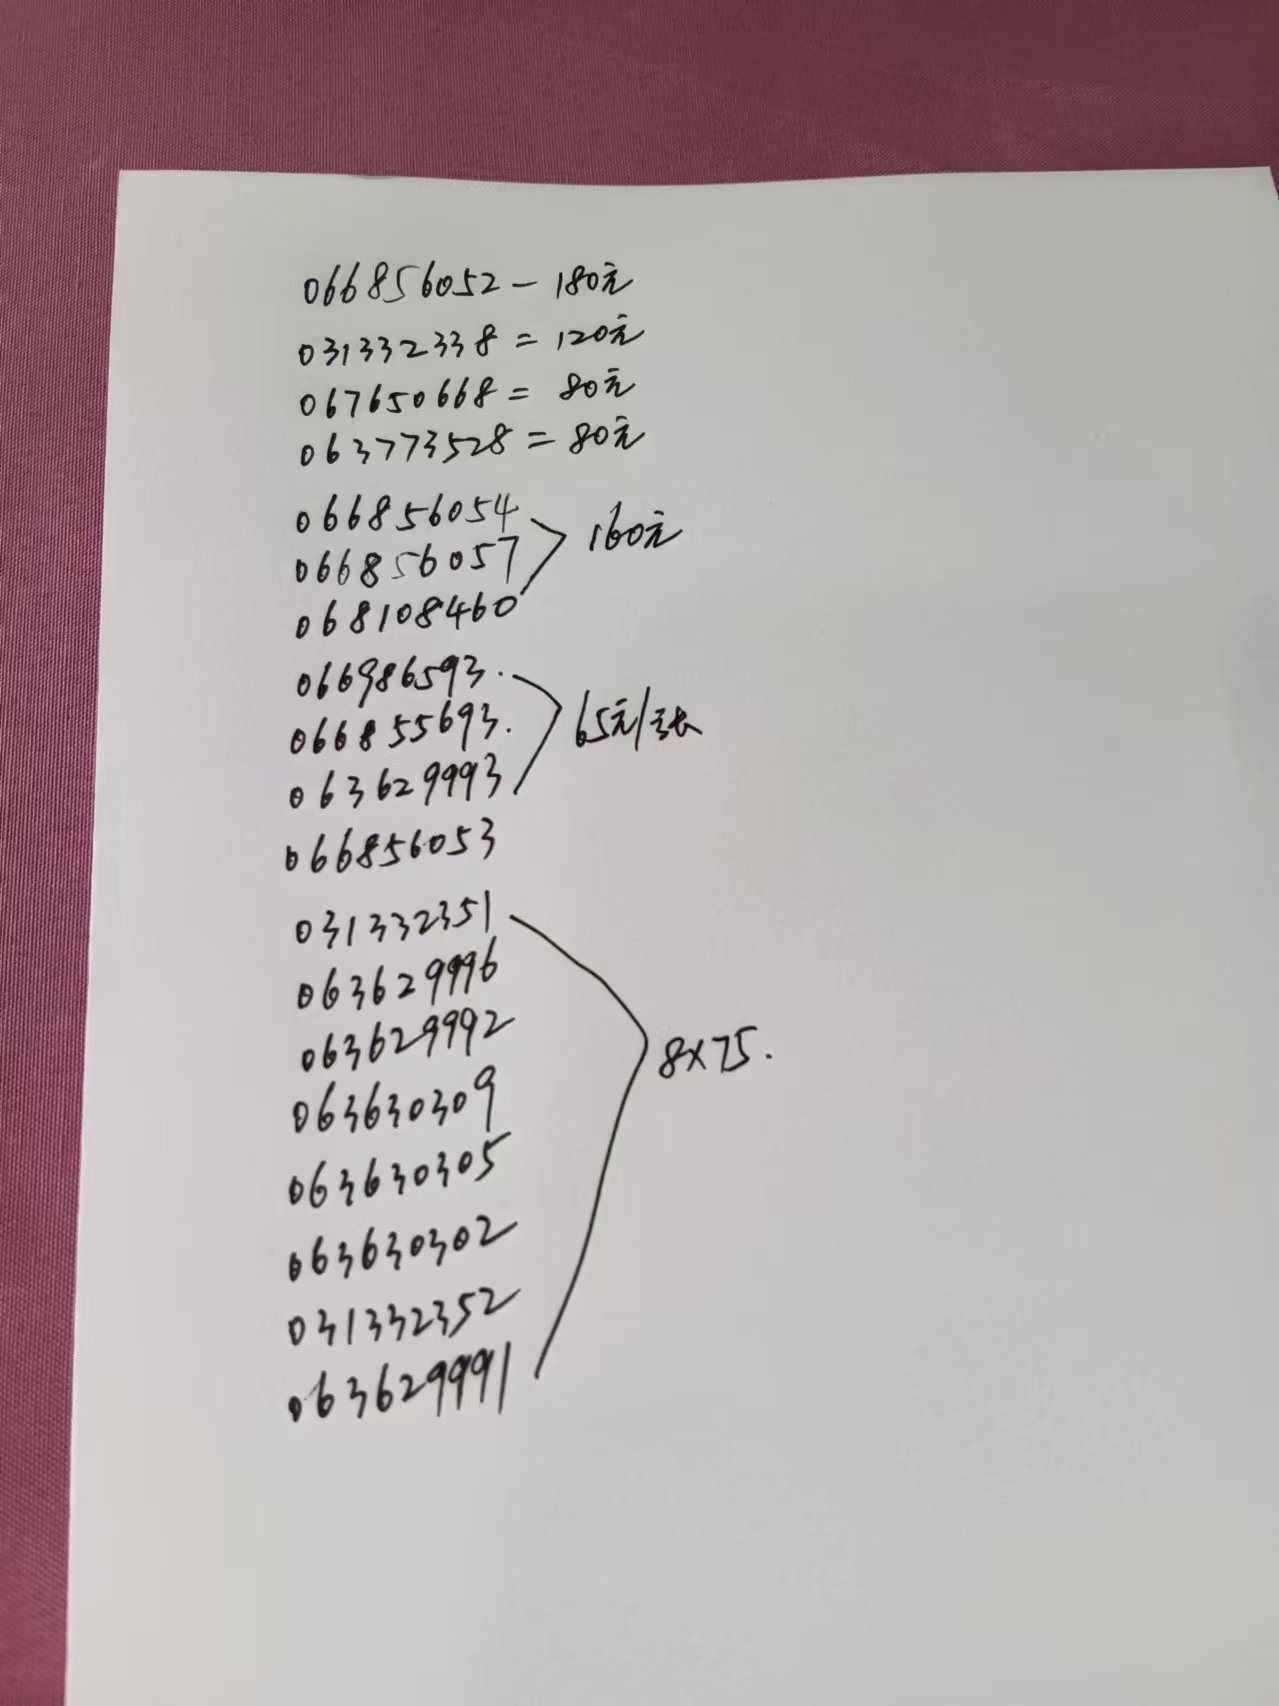 066856052 - 180元
031332338 = 120元
067650668 = 80元
063773528 = 80元
066856054
066856057
160元
068108460
066986593.
066855693.
65元/张
063629993
066856053
031332351
063629996
063629992
8×75.
063630309
063630305
063630302
031332352
063629991